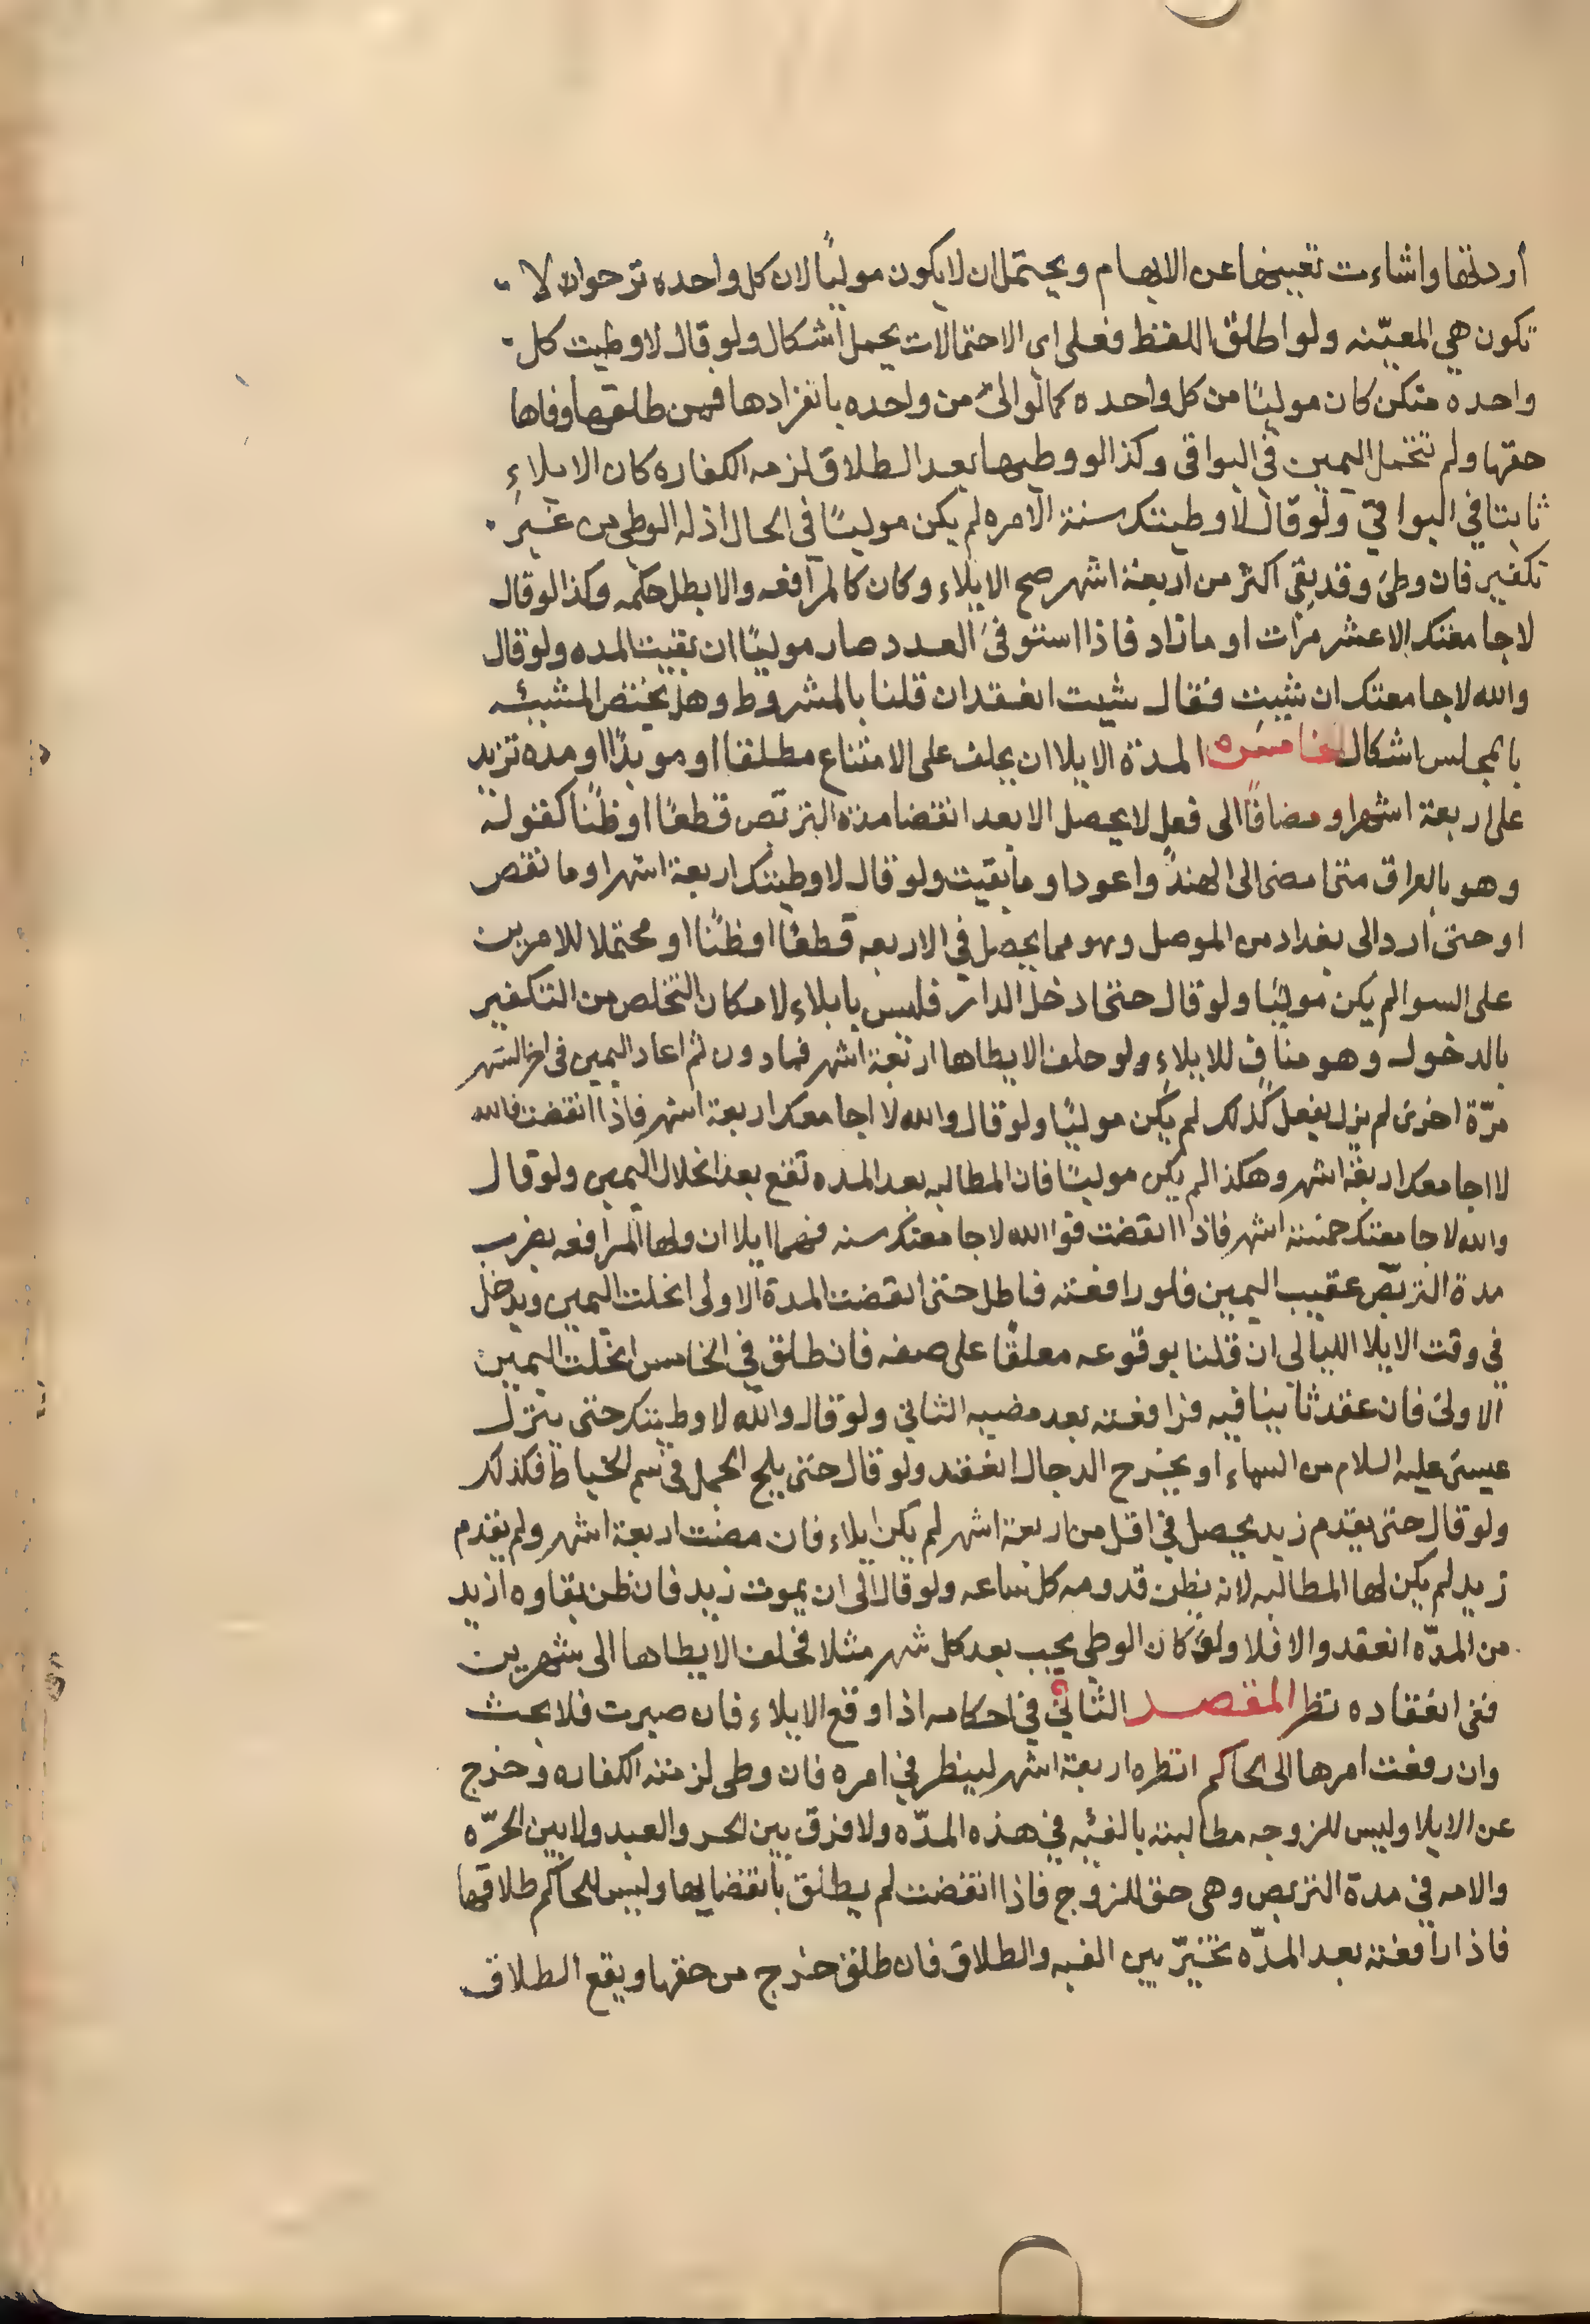 أردتها وانشاءت تعيينها عن الابهام ويحتمل ان لا يكون موليًا لان كل واحده ترجوان لا
تكون هي المعيّنه ولو اطلق اللفظ فعلى اي الاحتمالات يحمل اشكال ولو قال لا وطيت كل
واحده منكن كان موليًا من كل واحده كما لو الى من واحده بانفرادها فمن طلقها وفاها
حقها ولم تنحل اليمين في البواقي وكذا لو وطيها بعد الطلاق لزمه الكفاره كان الايلاء
ثابتا في البواقي ولو قال لا وطيتك سنة الا مره لم يكن موليًا في الحال اذ له الوطي من غير
تكفير فان وطئ وقد بقي اكثر من اربعة اشهر صح الايلاء وكان كالمرافعه والا بطل حكمه وكذا لو قال
لا جامعتك الا عشر مرّات او ما زاد فاذا استوفى العدد صار موليًا ان بقيت المده ولو قال
والله لا جامعتك ان شيت فقال شيت انعقد ان قلنا بالمشروط وهل يختص المشيئه
بالمجلس اشكال الخامسه المدة الايلا ان يحلف على الامتناع مطلقا او موبدًا او مده تزيد
على اربعة اشهر او مضافًا الى فعل لا يحصل الا بعد انقضا مدة التربّص قطعًا او ظنًا كقوله
وهو بالعراق متى امضى الى الهند واعود او ما بقيت ولو قال لا وطيتك اربعة اشهر او ما نقص
او حتى ارد الى بغداد من الموصل وهو مما يحصل في الاربعه قطعًا او ظنًا او محتملا للامرين
على السوا لم يكن موليًا ولو قال حتى ادخل الدار فليس بايلاء لامكان التخلص من التكفير
بالدخول وهو منافٍ للايلاء ولو حلف الا يطاها اربعة اشهر فما دون ثم اعاد اليمين في اخر الشهر
مرّة اخرى لم يزل يفعل كذلك لم يكن موليًا ولو قال والله لا اجامعك اربعة اشهر فاذا انقضت فالله
لا اجامعك اربعة اشهر وهكذا لم يكن موليًا فان المطالبه بعد المده تقع بعد انحلال اليمين ولو قال
والله لا جامعتك خمسة اشهر فاذا انقضت فوالله لا جامعتك سنه فهما ايلا ان ولها المرافعه بضرب
مدة التربّص عقيب اليمين فلو رافعته فماطل حتى انقضت المدة الاولى انحلت اليمين ويدخل
في وقت الايلا الليالي ان قلنا بوقوعه معلقا على صفه فان طلق في الخامس انحلت اليمين
الاولى فان عقد ثانيا فيه فرافعته بعد مضيه الثاني ولو قال والله لا وطيتك حتى ينزل
عيسى عليه السلام من السماء او يخرج الدجال انعقد ولو قال حتى يلج الجمل في سم الخياط فكذلك
ولو قال حتى يقدم زيد يحصل في اقل من اربعة اشهر لم يكن ايلاء فان مضت اربعة اشهر ولم يقدم
زيد لم يكن لها المطالبه لانه يظن قدومه كل ساعه ولو قال الى ان يموت زيد فان ظن بقاوه ازيد
من المدّه انعقد والا فلا ولو كان الوطي يجب بعد كل شهر مثلا فحلف الا يطاها الى شهرين
ففي انعقاده نظر المقصد الثاني في احكامه اذا وقع الايلاء فان صبرت فلا بحث
وان رفعت امرها الى الحاكم انظره اربعة اشهر لينظر في امره فان وطي لزمته الكفاره وخرج
عن الايلا وليس للزوجه مطالبته بالفئه في هذه المدّه ولا فرق بين الحر والعبد ولا بين الحرّه
والامه في مدة التربص وهي حق للزوج فاذا انقضت لم يطلق بانقضايها وليس للحاكم طلاقها
فاذا رافعته بعد المدّه تخيّر بين الفيه والطلاق فان طلق خرج من حقها ويقع الطلاق